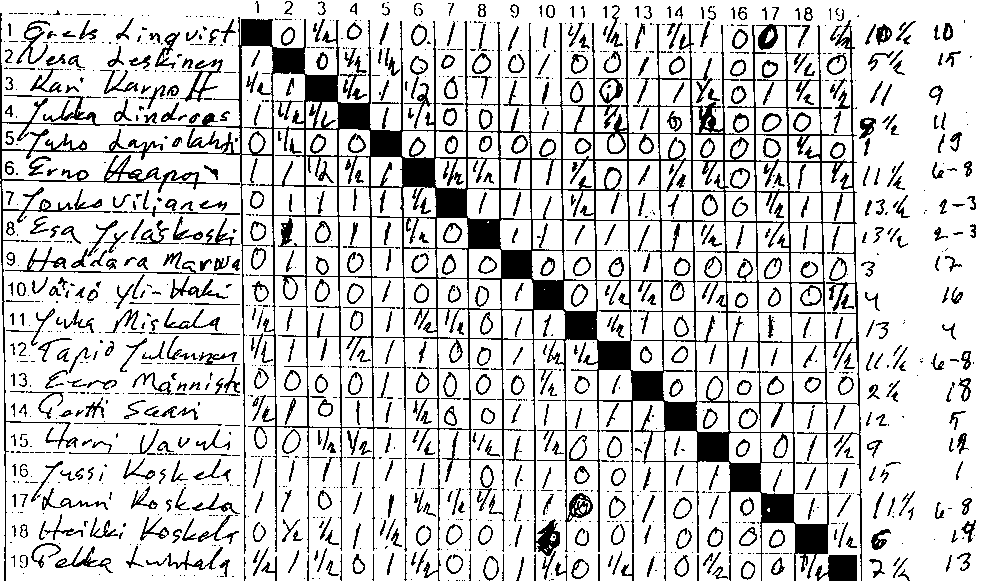 1 2 3 4 5 6 7 8 9 10 11 12 13 14 15 16 17 18 19
1 Linqvist ■ 0 1/2 0 1 0 1 1 1 1 1/2 1/2 1 1/2 1 0 0 1 1/2 10 1/2 10
2 Vesa Leskinen 1 ■ 0 1/2 1/2 0 0 0 0 1 0 0 1 0 1 0 0 1/2 0 5 1/2 15
3 Kari Karpoff 1/2 1 ■ 1/2 1 1/2 0 1 1 1 0 0 1 1 1/2 0 1 1/2 1/2 11 9
4. Jukka Lindroos 1 1/2 1/2 ■ 1 1/2 0 0 1 1 1 1/2 1 0 1/2 0 0 0 1 11
5. Juho Lapiolahti 0 1/2 0 0 ■ 0 0 0 0 0 0 0 0 0 0 0 0 1/2 0 1 19
6. Erno Haapoj 1 1 1/2 1/2 1 ■ 1/2 1/2 1 1 1/2 0 1 1/2 1/2 0 1/2 1 1/2 11 1/2 6-8
7 Jouko Viljanen 0 1 1 1 1 1/2 ■ 1 1 1 1/2 1 1 1 0 0 1/2 1 1 13 1/2 2-3
8. Esa Jyläskoski 0 1 0 1 1 1/2 0 ■ 1 1 1 1 1 1 1/2 1 1/2 1 1 13 1/2 2-3
9. Haddara Marwa 0 1 0 0 1 0 0 0 ■ 0 0 0 0 0 0 0 0 0 0 3 17
10. Väinö Yli-Haku 0 0 0 0 1 0 0 0 1 ■ 0 1/2 1/2 0 1/2 0 0 0 1/2 4 16
11. Juka Miskala 1/2 1 1 0 1 1/2 1/2 0 1 1 ■ 1/2 1 0 1 1 1 1 1 13 4
12. Tapio 1/2 1 1 1/2 1 1 0 0 1 1/2 1/2 ■ 0 0 1 1 1 1 1/2 11 1/2 6-8
13. Eero Männistö 0 0 0 0 1 0 0 0 1 1/2 0 1 ■ 0 0 0 0 0 0 2 1/2 18
14. Pertti Saari 1/2 1 0 1 1 1/2 0 0 1 1 1 1 1 ■ 0 0 1 1 1 12 5
15. Harri Vavuli 0 0 1/2 1/2 1 1/2 1 1/2 1 1/2 0 0 1 1 ■ 0 0 1 1/2 9 12
16. Jussi Koskela 1 1 1 1 1 1 1 0 1 1 0 0 1 1 1 ■ 1 1 1 15 1
17 Lauri Koskela 1 1 0 1 1 1/2 1/2 1/2 1 1 0 0 1 0 1 0 ■ 1 1 11 1/2 6-8
18 Heikki Koskela 0 1/2 1/2 1 1/2 0 0 0 1 0 0 1 0 0 0 0 ■ 1/2 6 14
19 Pekka Luhtala 1/2 1 1/2 0 1 1/2 0 0 1 1/2 0 1/2 1 0 1/2 0 0 1/2 ■ 7 1/2 13